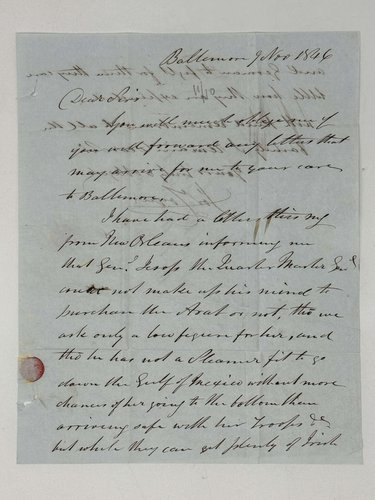 Baltimore 9 Nov 1846
Dear Sirs
You will much oblige me if
you will forward any letters that
may arrive for me to your care
to Baltimore
I have had a letter this mg
from New Orleans informing me
that Genl Jesop the Quarter Master Genl
could not make up his mind to
purchase the Arab or not, tho we
ask only a low figure for her, and
tho he has not a Steamer fit to go
down the Gulf of Mexico without more
chances of her going to the bottom than
arriving safe with her Troops &c
but while they can get plenty of Irish